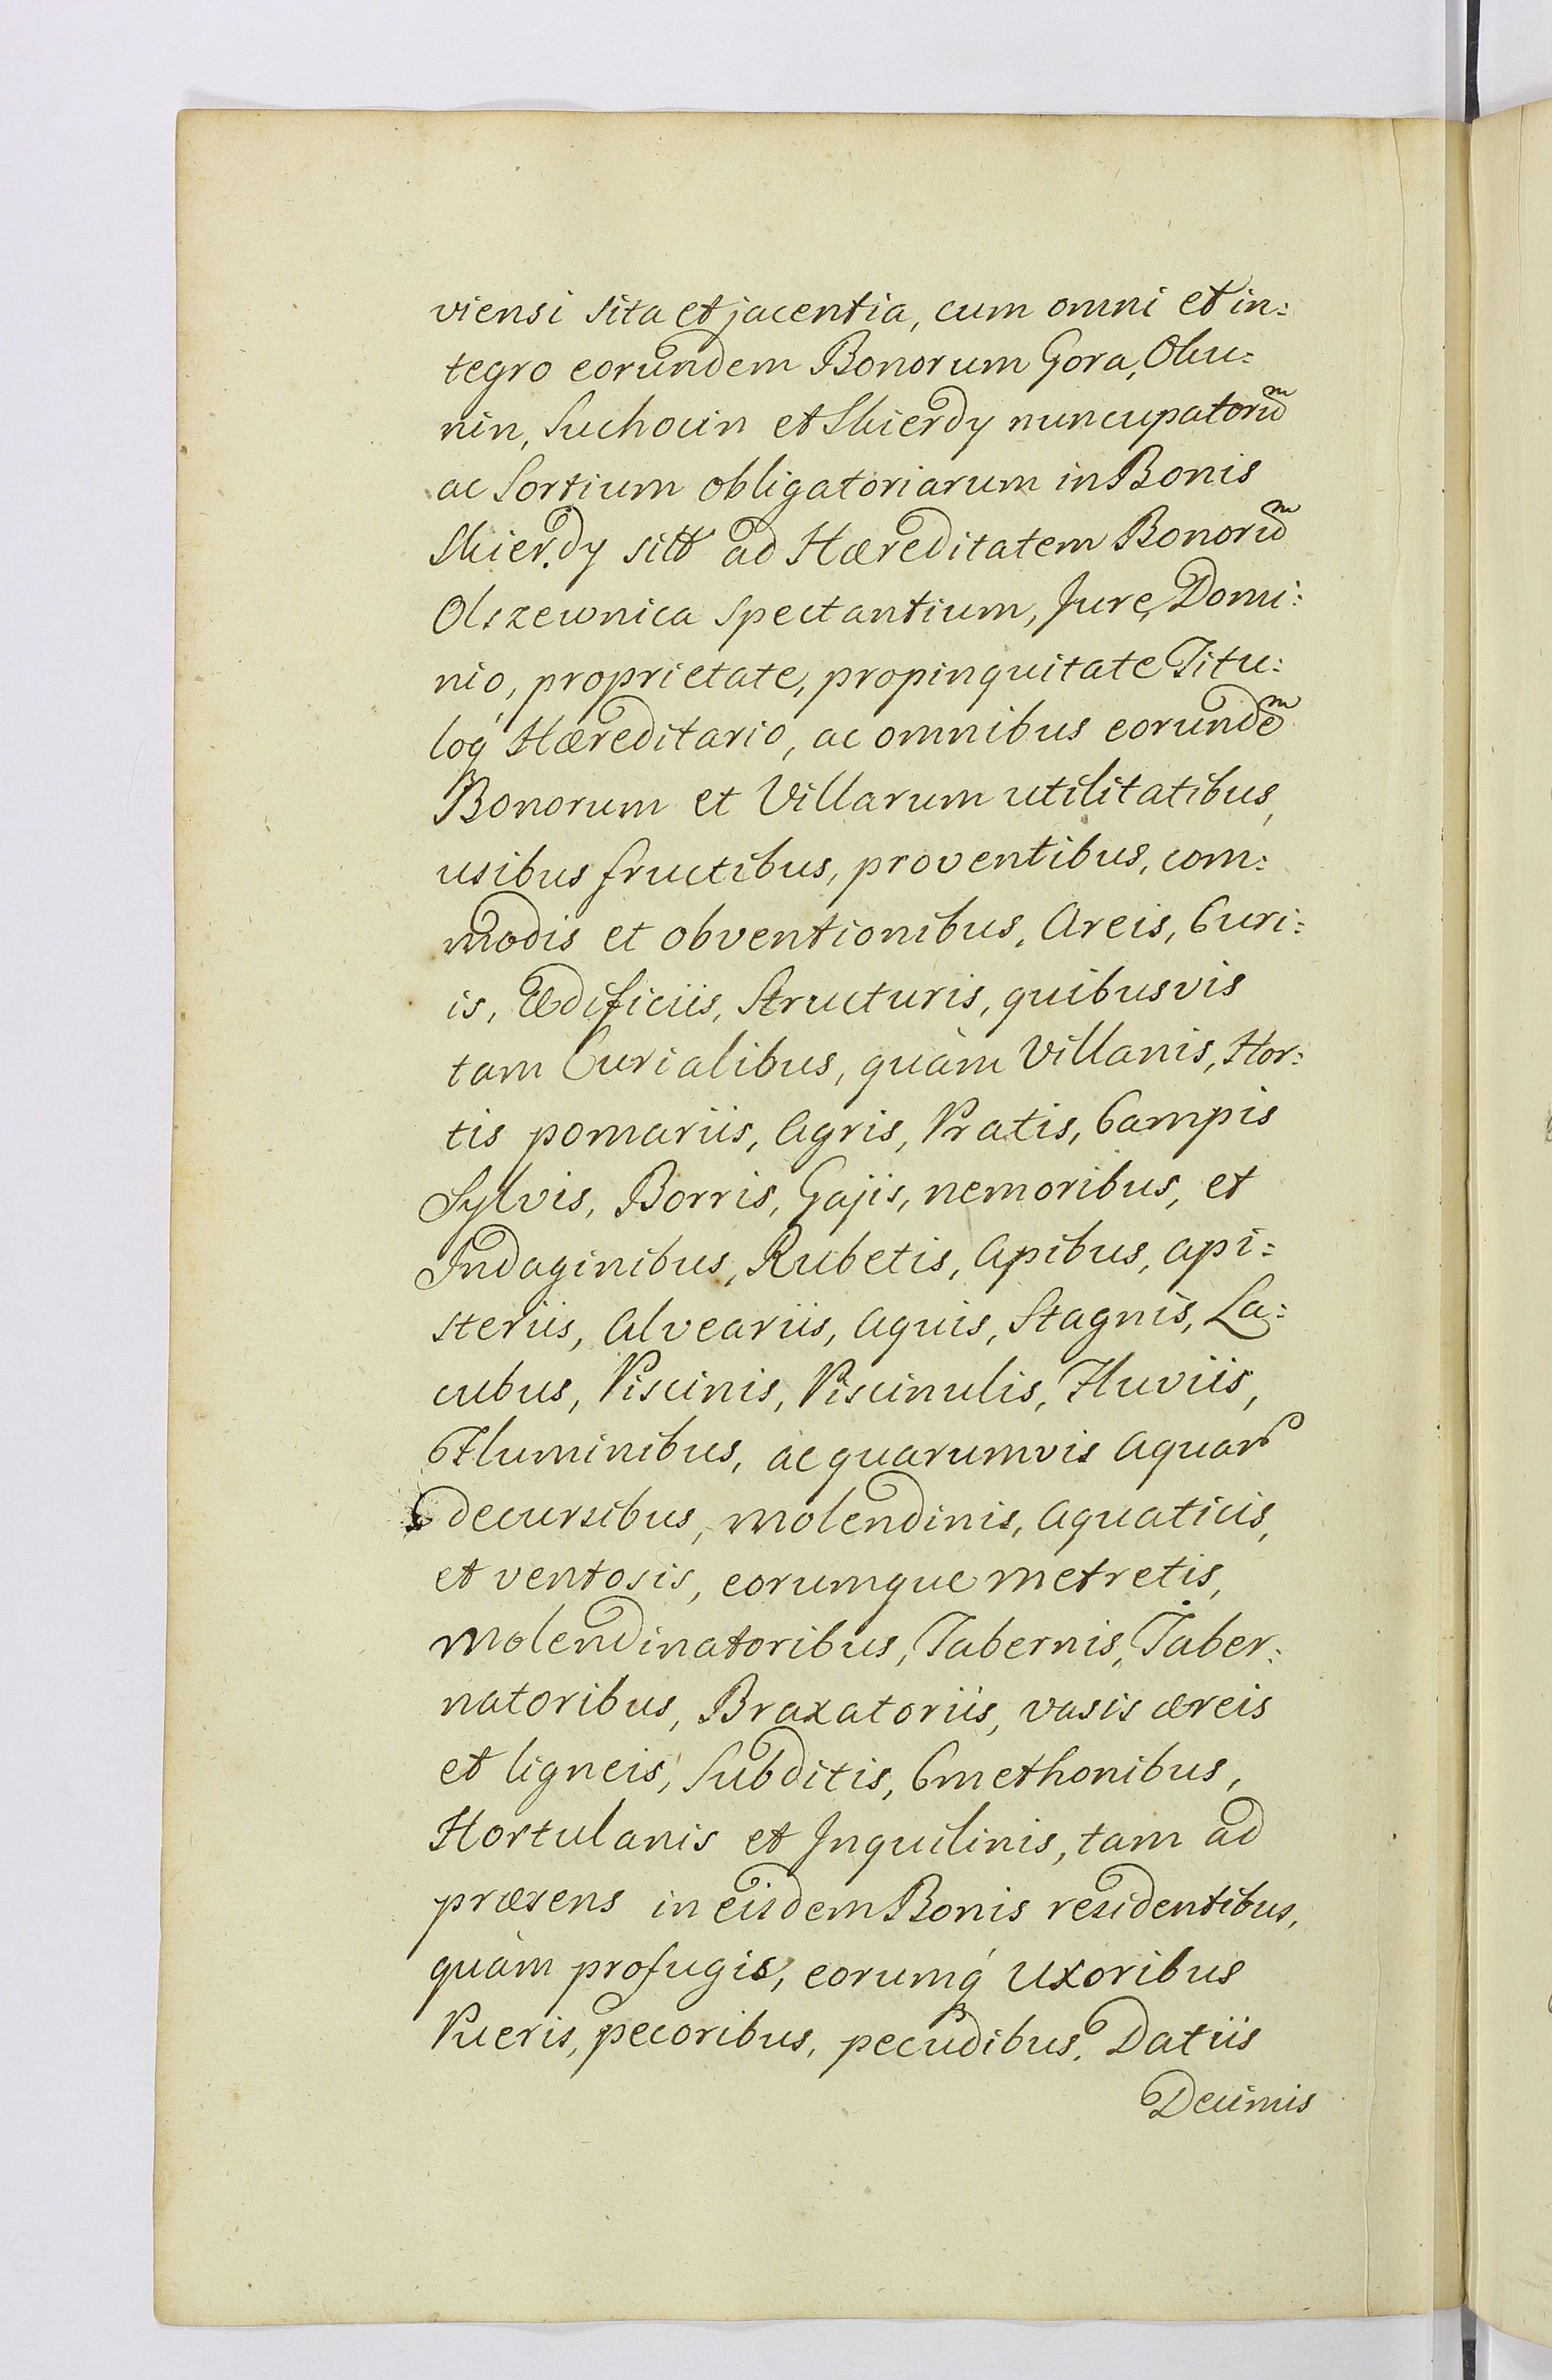 viensi sita et jacentia, cum omni et in:
tegro eorundem Bonorum Gora, Olu:
nin, Suchocin et Skierdy nuncupatorum
ac Sortium obligatoriarum in Bonis
Skierdy sitt ad Hæreditatem Bonorum
Olszewnica spectantium, Jure, Domi:
nio, proprietate, propinquitate Titu:
loq́ Hæreditario, ac omnibus eorundem
Bonorum et Villarum utilitatibus,
usibus fructibus, proventibus, com:
modis et obventionibus, Areis, Curi:
is, Ædificiis, Structuris, quibusvis
tam Curialibus, quàm Villanis, Hor:
tis pomariis, Agris, Pratis, Campis
Sylvis, Borris, Gajis, nemoribus, et
Indaginibus, Rubetis, Apibus, api:
steriis, Alveariis, Aquis, Stagnis, La:
cubus, Piscinis, Piscinulis, Fluviis,
Fluminibus, ac quarumvis Aquar
decursibus, molendinis, Aquaticis,
et ventosis, eorumque metretis,
Molendinatoribus, Tabernis, Taber:
natoribus, Braxatoriis, vasis æreis
et ligneis, Subditis, Cmethonibus,
Hortulanis et Inquilinis, tam ad
præsens in eisdem Bonis residentibus,
quàm profugis, eorumq́ Uxoribus
Pueris, pecoribus, pecudibus. Datiis
Decimis